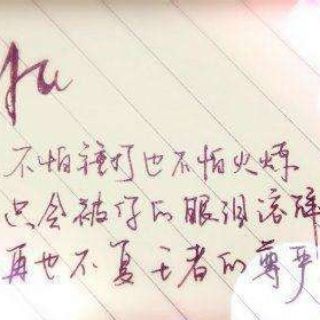 不怕打也不怕火燎
只会被你的眼泪
再也不复王者的尊严